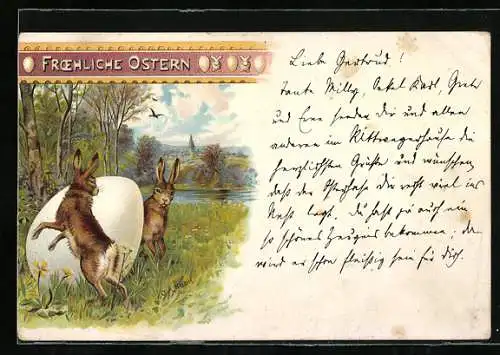 FRŒHLICHE OSTERN
Liebe Gertrud!
Tante Milly, Onkel Karl, Grete
und Erna senden dir und allen
anderen im Rittwegerhause die
herzlichsten Grüsse und wünschen,
dass der Osterhase dir recht viel ins
Nest legt. Du hast ja auch ein
so schönes Zeugnis bekommen, da
wird er schon fleißig sein für dich.